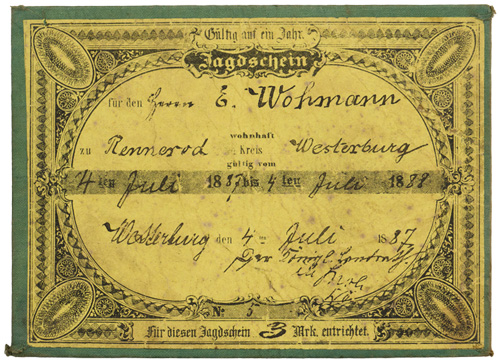 Gültig auf ein Jahr.
Jagdschein
für den Herrn E. Wohmann
wohnhaft
zu Rennerod Kreis Westerburg
gültig vom
4 ten Juli 1887 bis 4 ten Juli 1888
Westerburg den 4 ten Juli 1887
Der Königl. Landrath
№ 5
Für diesen Jagdschein 3 Mrk. entrichtet.